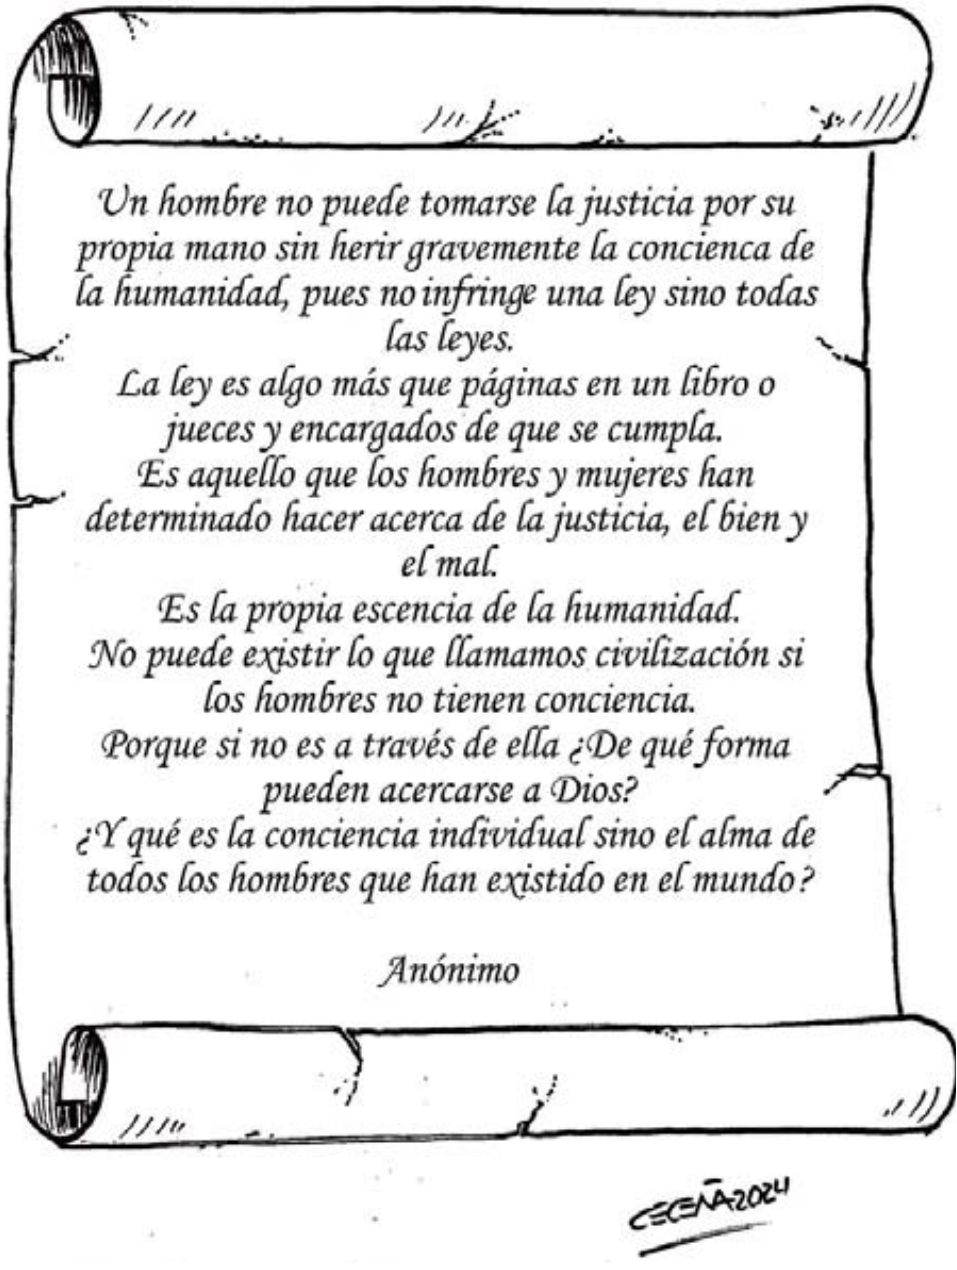 Un hombre no puede tomarse la justicia por su
propia mano sin herir gravemente la concienca de
la humanidad, pues no infringe una ley sino todas
las leyes.
La ley es algo más que páginas en un libro o
jueces y encargados de que se cumpla.
Es aquello que los hombres y mujeres han
determinado hacer acerca de la justicia, el bien y
el mal.
Es la propia escencia de la humanidad.
No puede existir lo que llamamos civilización si
los hombres no tienen conciencia.
Porque si no es a través de ella ¿De qué forma
pueden acercarse a Dios?
¿Y qué es la conciencia individual sino el alma de
todos los hombres que han existido en el mundo?
Anónimo
CECEÑA2024